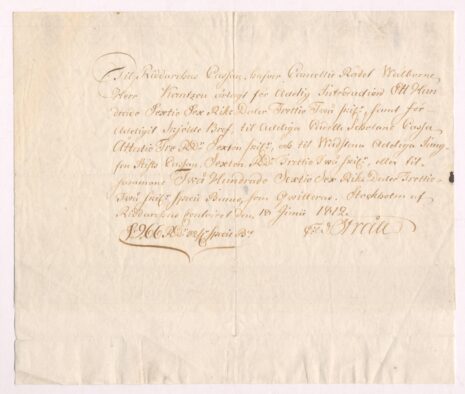 Til Riddarehus Cassan, hafver Cancellie Rådet Wälborne
Herr Frantzén erlagt för Adelig Introduction Ett Hun
drade Sextio Sex Riks Daler Trettio Två sk., samt för
Adeligit Sköldebref, til Adeliga Scholans Cassa
Åttatio Tre Rd. Sexton sk., och til Wadstena Adeliga Jung
fru Stifts Cassan, Sexton Rd. Trettio Två sk., eller til
sammans Två Hundrade Sextio Sex Riks Daler Trettio
Två sk. specie Banco, som qvitteras. Stockholm af
Riddarhus Contoiret d. 18 Junii 1812.
266 Rd. 32 sk. specie Bo.